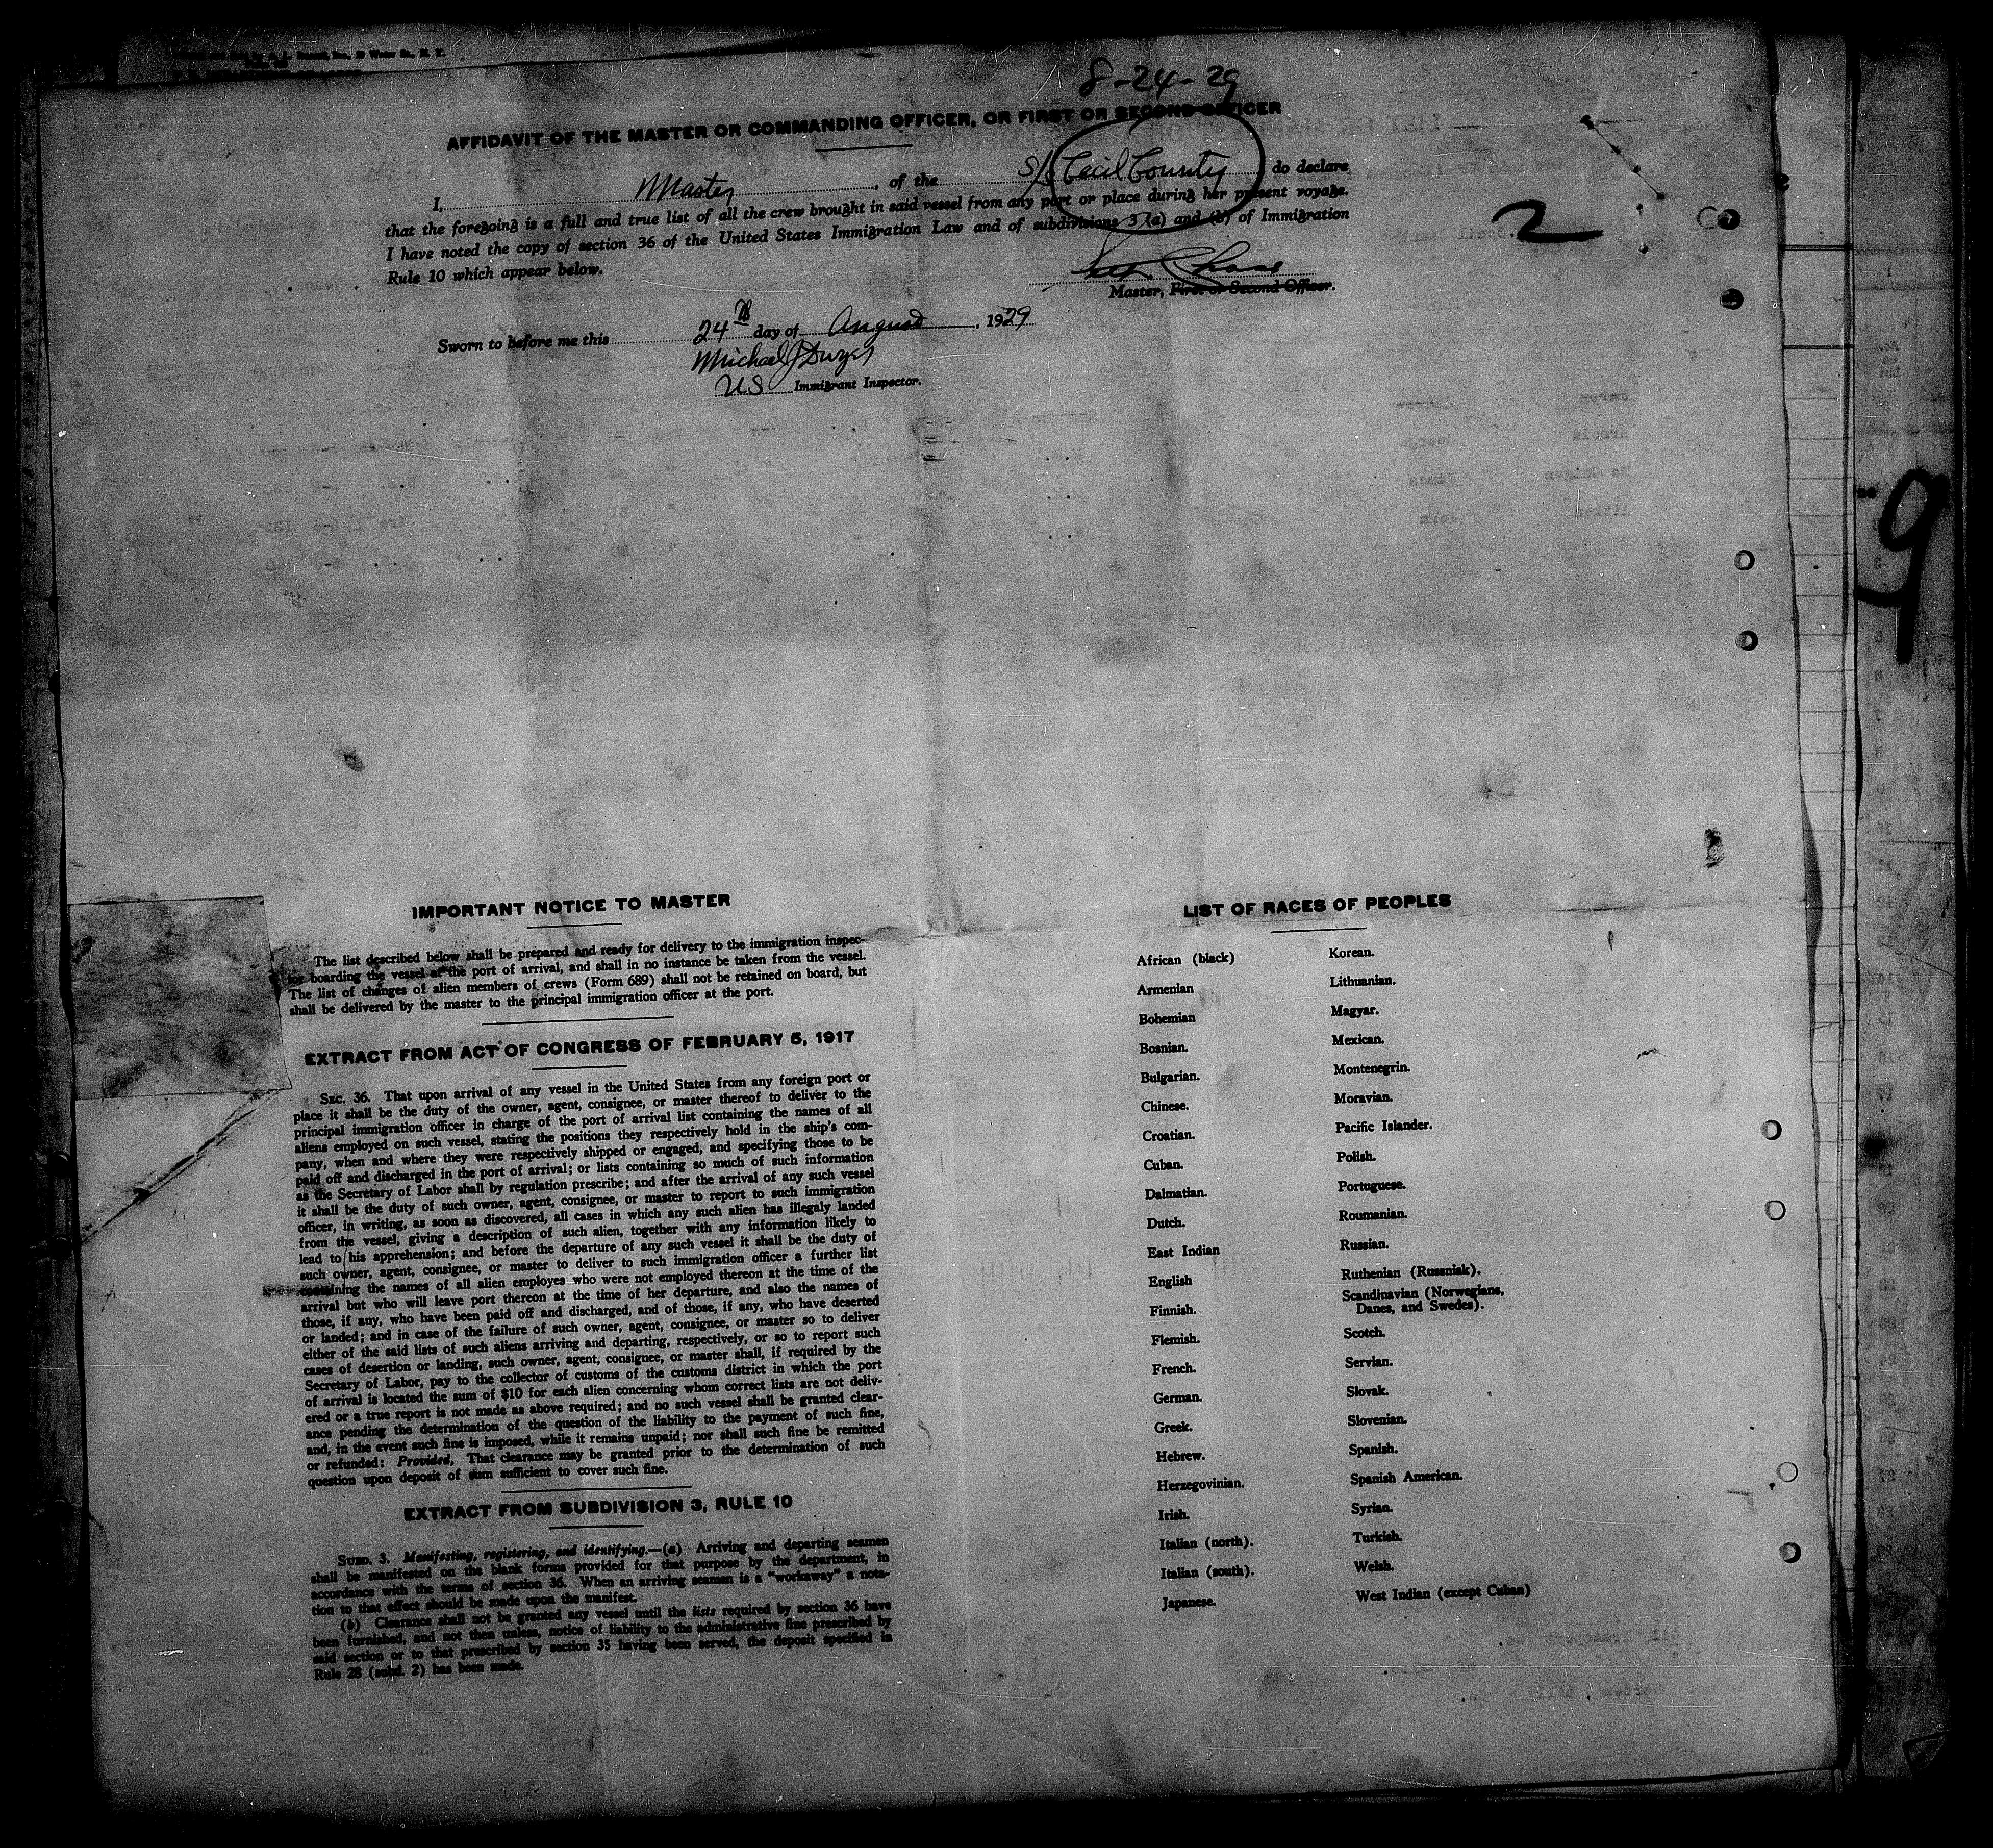 Water St., N. Y.
8-24-29
AFFIDAVIT OF THE MASTER OR COMMANDING OFFICER, OR FIRST OR SECOND OFFICER
I, Master, of the S/S Cecil County do declare
that the foregoing is a full and true list of all the crew brought in said vessel from any port or place during her present voyage.
I have noted the copy of section 36 of the United States Immigration Law and of subdivisions 3 (a) and (b) of Immigration
Rule 10 which appear below.
2
Master, First or Second Officer.
Sworn to before me this 24th day of August, 1929
Michael J
US Immigrant Inspector.
9
IMPORTANT NOTICE TO MASTER
The list described below shall be prepared and ready for delivery to the immigration inspec-
tor boarding the vessel at the port of arrival, and shall in no instance be taken from the vessel.
The list of changes of alien members of crews (Form 689) shall not be retained on board, but
shall be delivered by the master to the principal immigration officer at the port.
EXTRACT FROM ACT OF CONGRESS OF FEBRUARY 5, 1917
SEC. 36. That upon arrival of any vessel in the United States from any foreign port or
place it shall be the duty of the owner, agent, consignee, or master thereof to deliver to the
principal immigration officer in charge of the port of arrival list containing the names of all
aliens employed on such vessel, stating the positions they respectively hold in the ship's com-
pany, when and where they were respectively shipped or engaged, and specifying those to be
paid off and discharged in the port of arrival; or lists containing so much of such information
as the Secretary of Labor shall by regulation prescribe; and after the arrival of any such vessel
it shall be the duty of such owner, agent, consignee, or master to report to such immigration
officer, in writing, as soon as discovered, all cases in which any such alien has illegaly landed
from the vessel, giving a description of such alien, together with any information likely to
lead to his apprehension; and before the departure of any such vessel it shall be the duty of
such owner, agent, consignee, or master to deliver to such immigration officer a further list
containing the names of all alien employes who were not employed thereon at the time of the
arrival but who will leave port thereon at the time of her departure, and also the names of
those, if any, who have been paid off and discharged, and of those, if any, who have deserted
or landed; and in case of the failure of such owner, agent, consignee, or master so to deliver
either of the said lists of such aliens arriving and departing, respectively, or so to report such
cases of desertion or landing, such owner, agent, consignee, or master shall, if required by the
Secretary of Labor, pay to the collector of customs of the customs district in which the port
of arrival is located the sum of $10 for each alien concerning whom correct lists are not deliv-
ered or a true report is not made as above required; and no such vessel shall be granted clear-
ance pending the determination of the question of the liability to the payment of such fine,
and, in the event such fine is imposed, while it remains unpaid; nor shall such fine be remitted
or refunded: Provided, That clearance may be granted prior to the determination of such
question upon deposit of sum sufficient to cover such fine.
EXTRACT FROM SUBDIVISION 3, RULE 10
SUBD. 3. Manifesting, registering, and identifying.—(a) Arriving and departing seamen
shall be manifested on the blank forms provided for that purpose by the department, in
accordance with the terms of section 36. When an arriving seamen is a "workaway" a nota-
tion to that effect should be made upon the manifest.
(b) Clearance shall not be granted any vessel until the lists required by section 36 have
been furnished, and not then unless, notice of liability to the administrative fine prescribed by
said section or to that prescribed by section 35 having been served, the deposit specified in
Rule 28 (subd. 2) has been made.
LIST OF RACES OF PEOPLES
African (black)
Armenian
Bohemian
Bosnian.
Bulgarian.
Chinese.
Croatian.
Cuban.
Dalmatian.
Dutch.
East Indian
English
Finnish.
Flemish.
French.
German.
Greek.
Hebrew.
Herzegovinian.
Irish.
Italian (north).
Italian (south).
Japanese.
Korean.
Lithuanian.
Magyar.
Mexican.
Montenegrin.
Moravian.
Pacific Islander.
Polish.
Portuguese.
Roumanian.
Russian.
Ruthenian (Russniak).
Scandinavian (Norwegians,
Danes, and Swedes).
Scotch.
Servian.
Slovak.
Slovenian.
Spanish.
Spanish American.
Syrian.
Turkish.
Welsh.
West Indian (except Cuban)